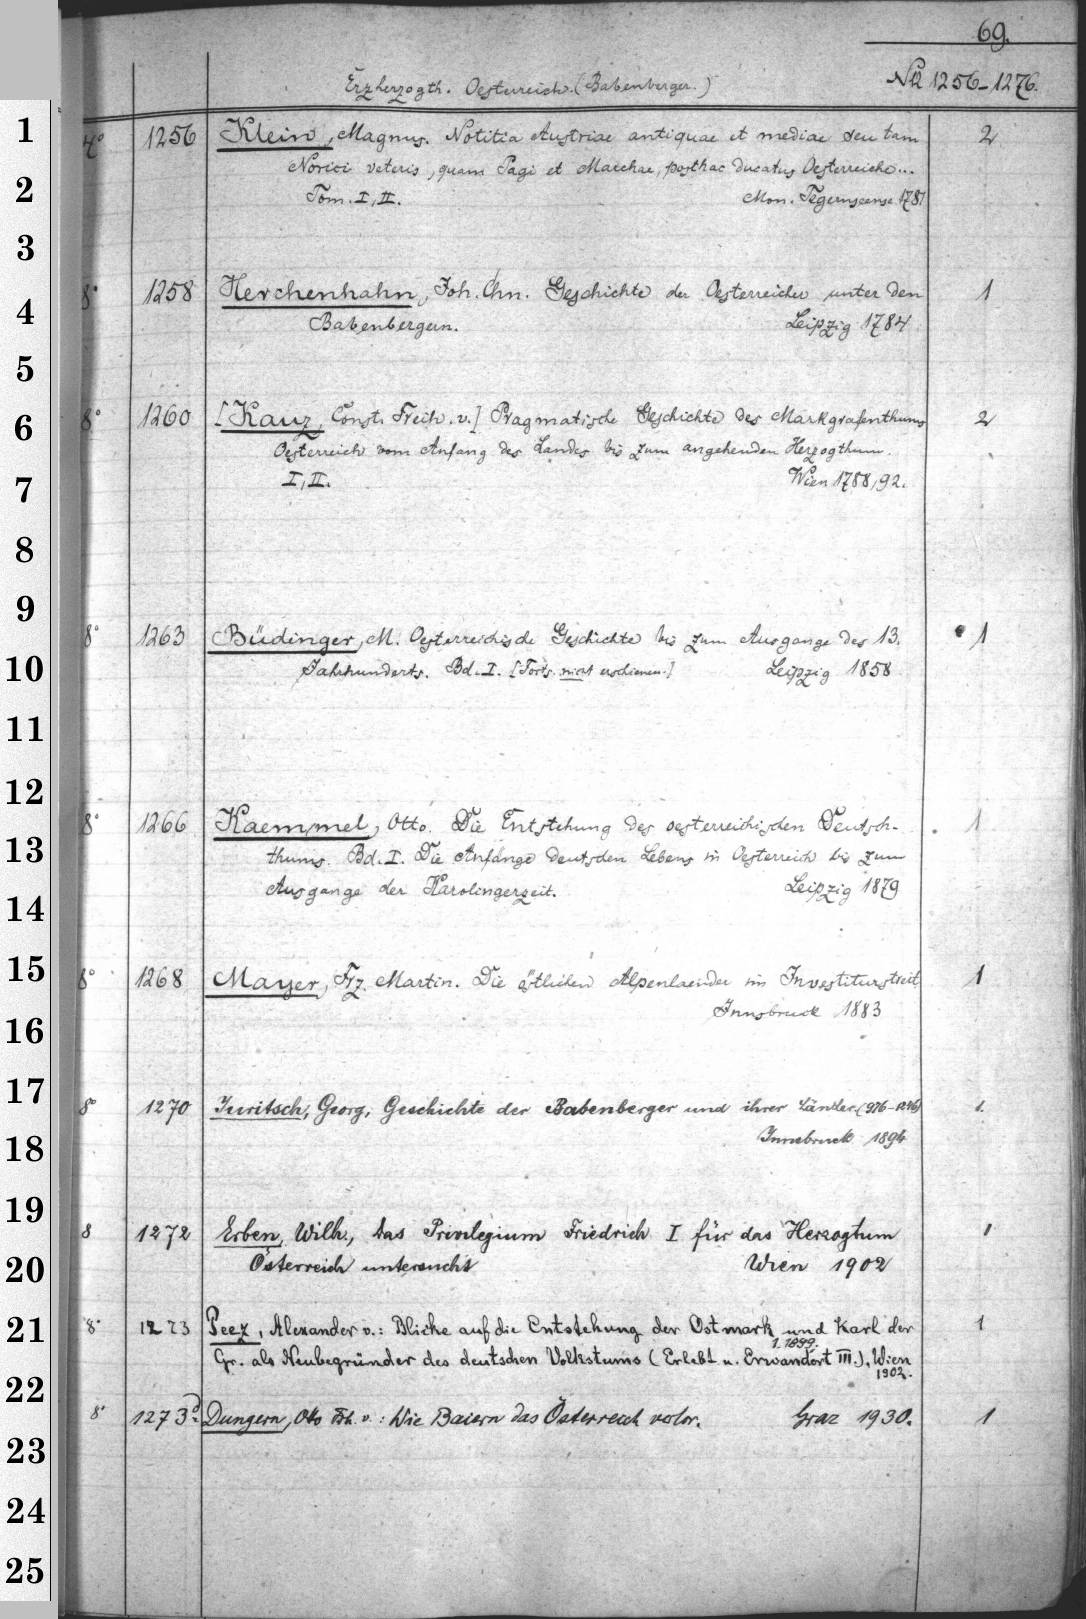 69.
Erzherzogth. Oesterreich. (Babenberger.) № 1256-1276.
4° 1256 Klein, Magnus. Notitia Austriae antiquae et mediae seu tam 2
Norici veteris, quam Pagi et Marchae, posthac ducatus Oesterreiche...
Tom. I, II. Mon. Tegernseense 1781
8° 1258 Herchenhahn, Joh. Chn. Geschichte der Oesterreicher unter den 1
Babenbergern. Leipzig 1784
8° 1260 [Kauz, Const. Freih. v.] Pragmatische Geschichte des Markgrafenthums 2
Oesterreich vom Anfang des Landes bis zum angehenden Herzogthum.
I, II. Wien 1788, 92.
8° 1263 Büdinger, M. Oesterreichische Geschichte bis zum Ausgange des 13. 1
Jahrhunderts. Bd. I. [Forts. nicht erschienen.] Leipzig 1858
8° 1266 Kaemmel, Otto. Die Entstehung des oesterreichischen Deutsch- 1
thums. Bd. I. Die Anfänge deutschen Lebens in Oesterreich bis zum
Ausgange der Karolingerzeit. Leipzig 1879
8° 1268 Mayer, Frz. Martin. Die östlichen Alpenlaender im Investiturstreit 1
Innsbruck 1883
8° 1270 Juritsch, Georg, Geschichte der Babenberger und ihrer Länder (976-1246) 1.
Innsbruck 1894
8 1272 Erben, Wilh., das Privilegium Friedrich I für das Herzogtum 1
Österreich untersucht Wien 1902
8° 1273 Peez, Alexander v.: Blicke auf die Entstehung der Ostmark und Karl der 1
1. 1899.
Gr. als Neubegründer des deutschen Volkstums (Erlebt u. Erwandert III.), Wien
1902.
8° 1273d Dungern, Otto Frh. v.: Wie Baiern das Österreich verlor. Graz 1930. 1
1
2
3
4
5
6
7
8
9
10
11
12
13
14
15
16
17
18
19
20
21
22
23
24
25